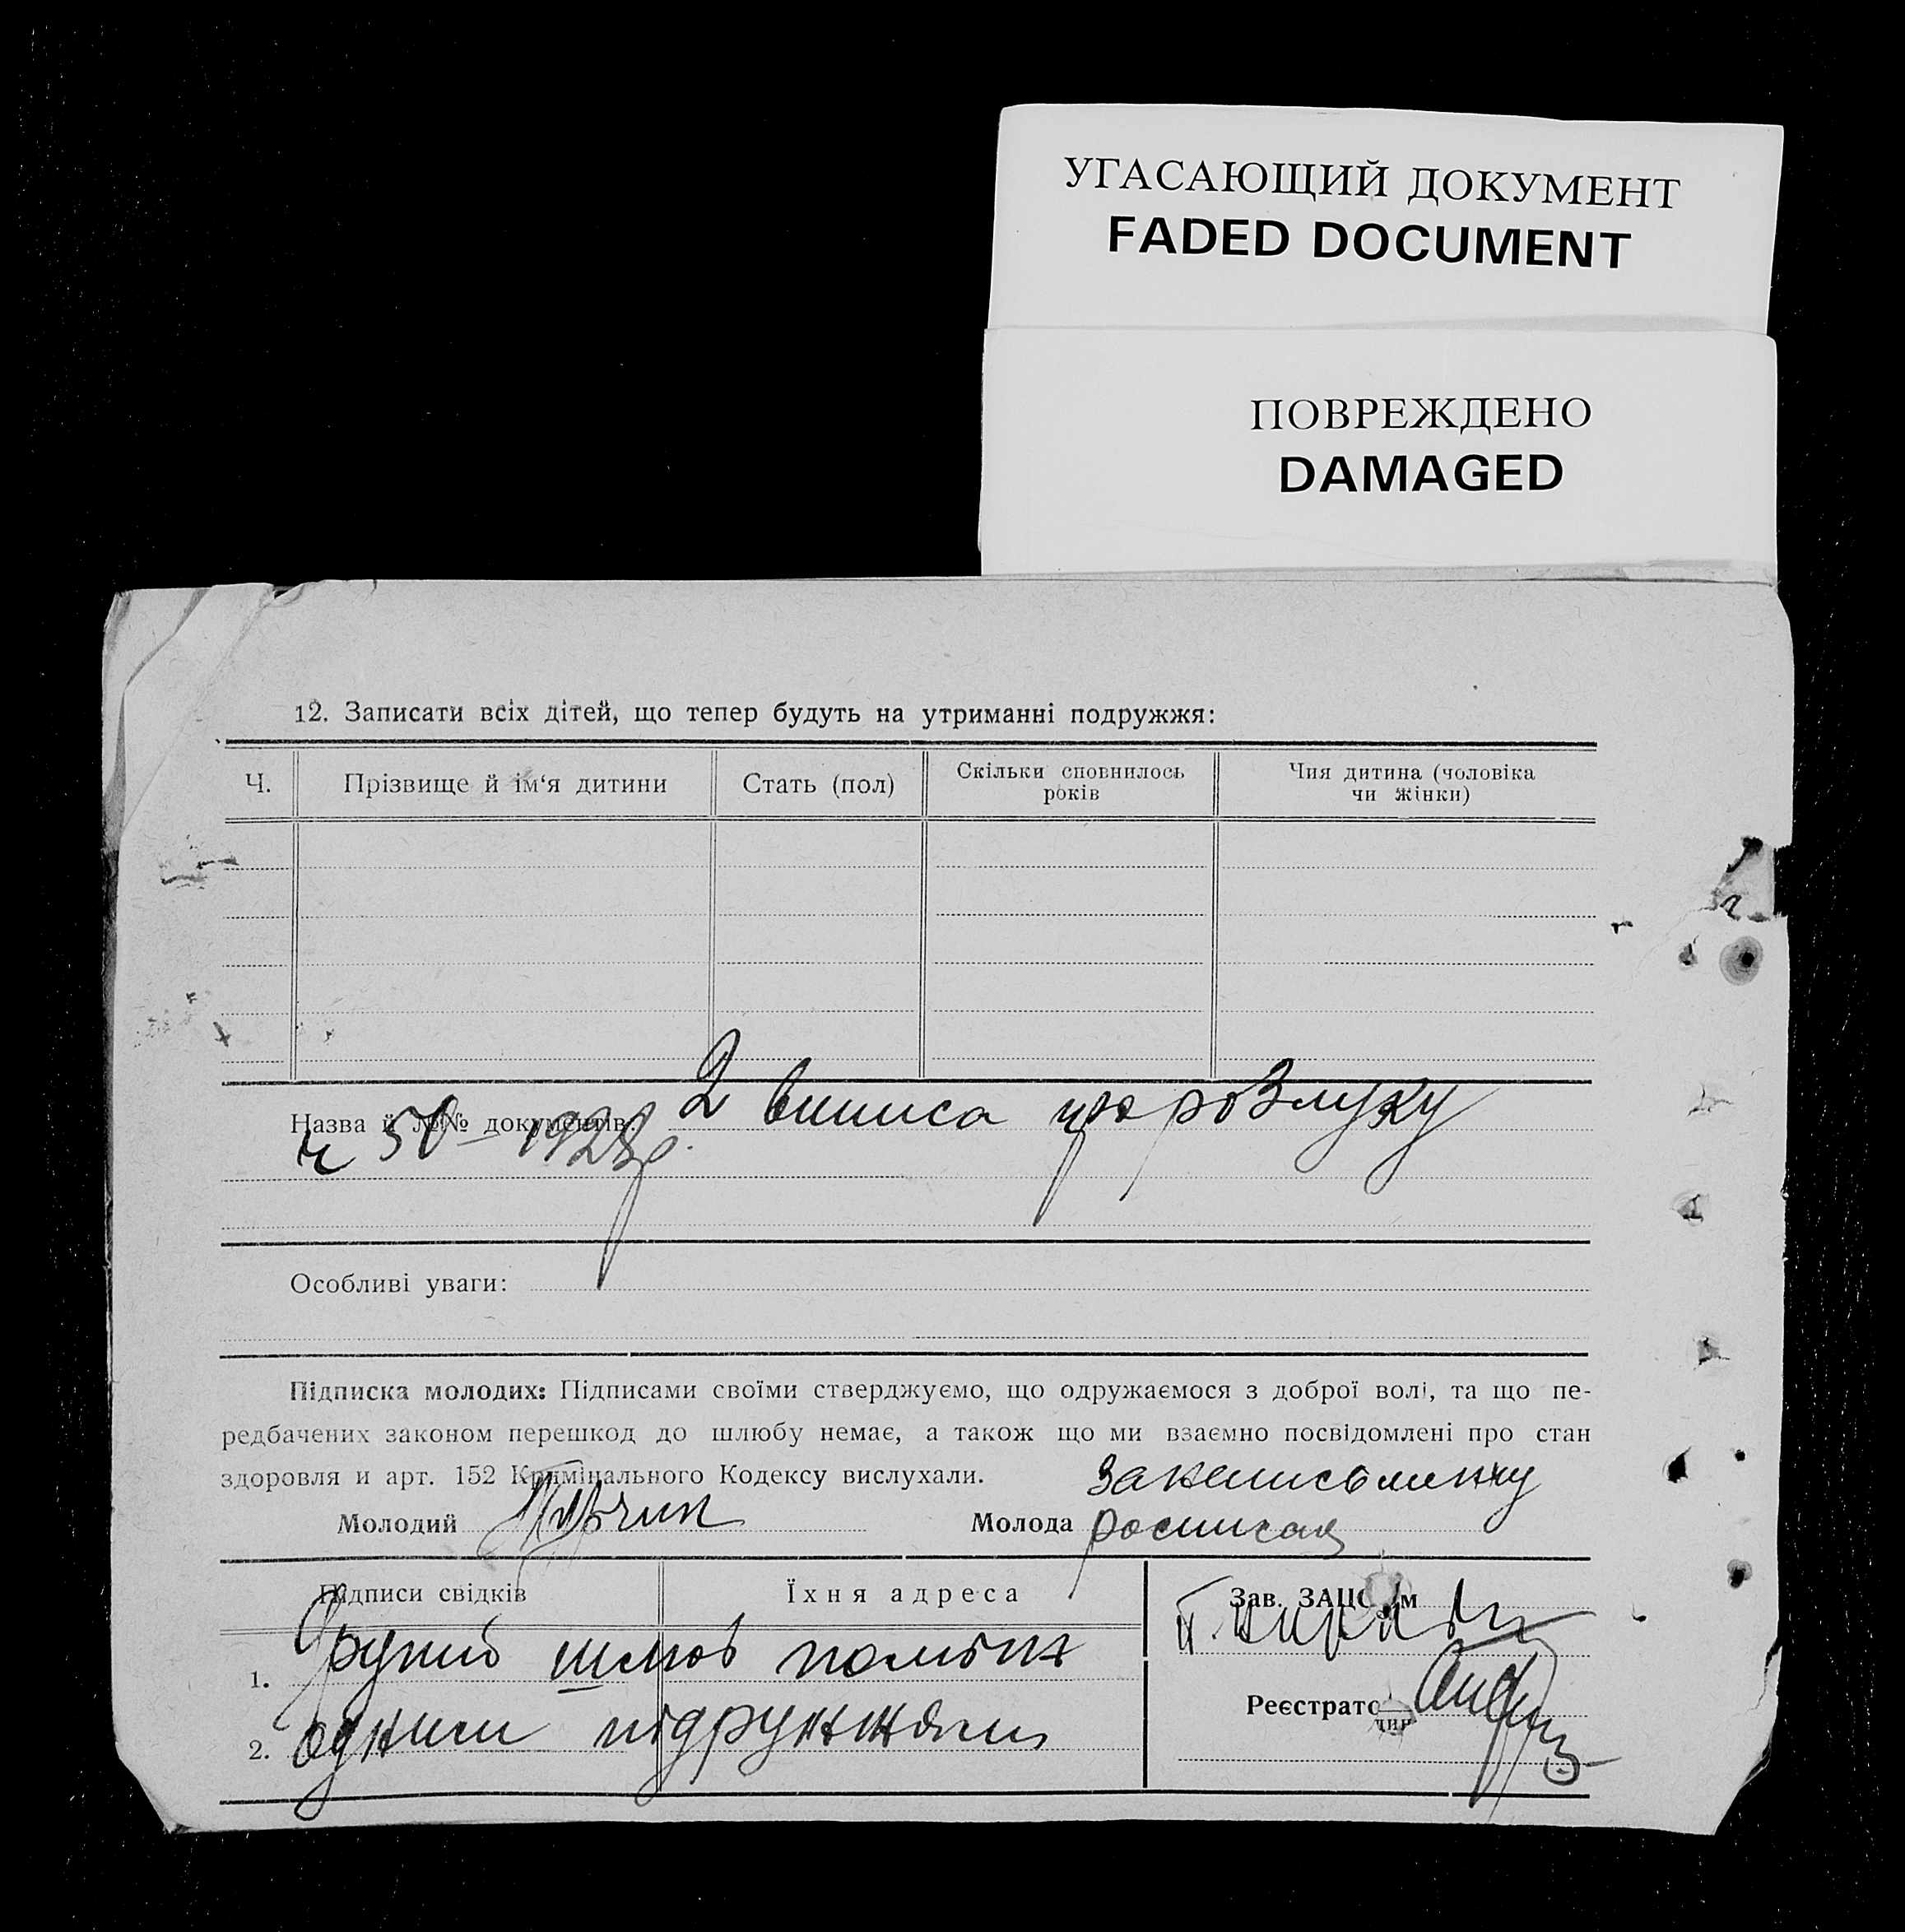 УГАСАЮЩИЙ ДОКУМЕНТ
FADED DOCUMENT
ПОВРЕЖДЕНО
DAMAGED
12. Записати всіх дітей, що тепер будуть на утриманні подружжя:
Ч. Прізвище й ім‘я дитини Стать (пол) Скільки сповнилось років Чия дитина (чоловіка чи жінки)
Назва й №№ документів: 2 виписа про розлуку
50 – 1928 р.
Особливі уваги:
Підписка молодих: Підписами своїми стверджуємо, що одружаємося з доброї волі, та що пе-
редбачених законом перешкод до шлюбу немає, а також що ми взаємно посвідомлені про стан
здоровля и арт. 152 Кримінального Кодексу вислухали.
Молодий Молода
Підписи свідків Їхня адреса Зав. ЗАЦС'ом
1. Другий шлюб поміж
Реєстратор
2. одними підружжями